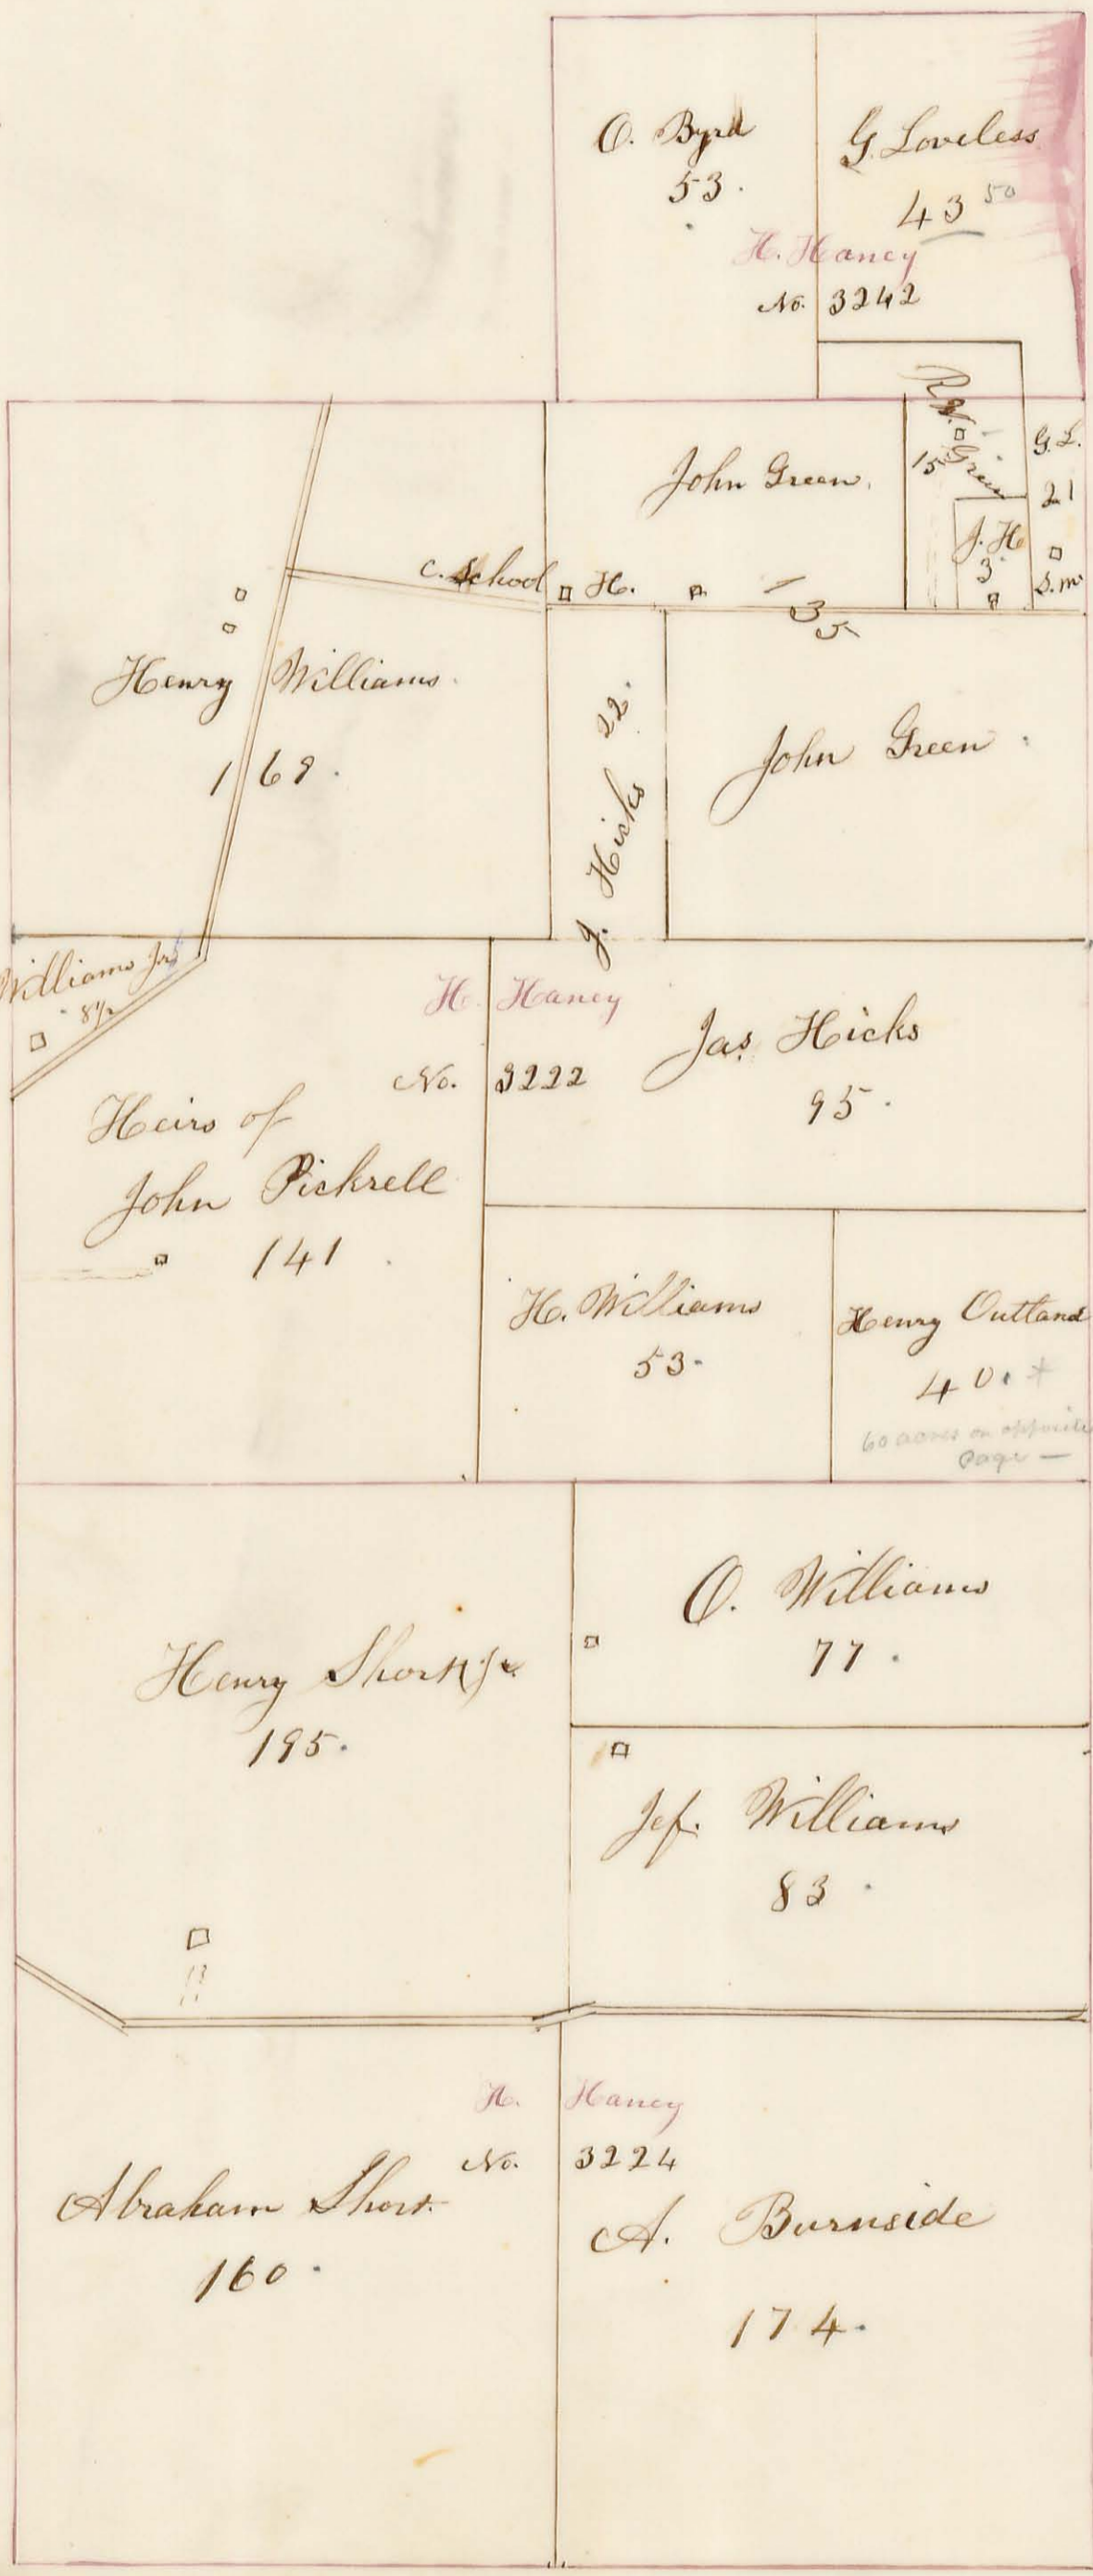 O. Byrd
53.
G. Loveless
43 50
H. Haney
No. 3242
R. W. Green
15
G. L.
21
S. M.
J. H
3
John Green.
135
C. School H.
Henry Williams.
J. Hicks 22.
John Green.
Williams Jr.
8 1/2
H. Haney
No. 3222
Jas. Hicks
95.
Heirs of
John Pickrell
141
H. Williams
53.
Henry Outland
40. +
60 acres on opposite
page —
O. Williams
77.
Henry Short Jr.
195.
Jef. Williams
83.
H. Haney
No. 3224
Abraham Short.
160.
A. Burnside
174.